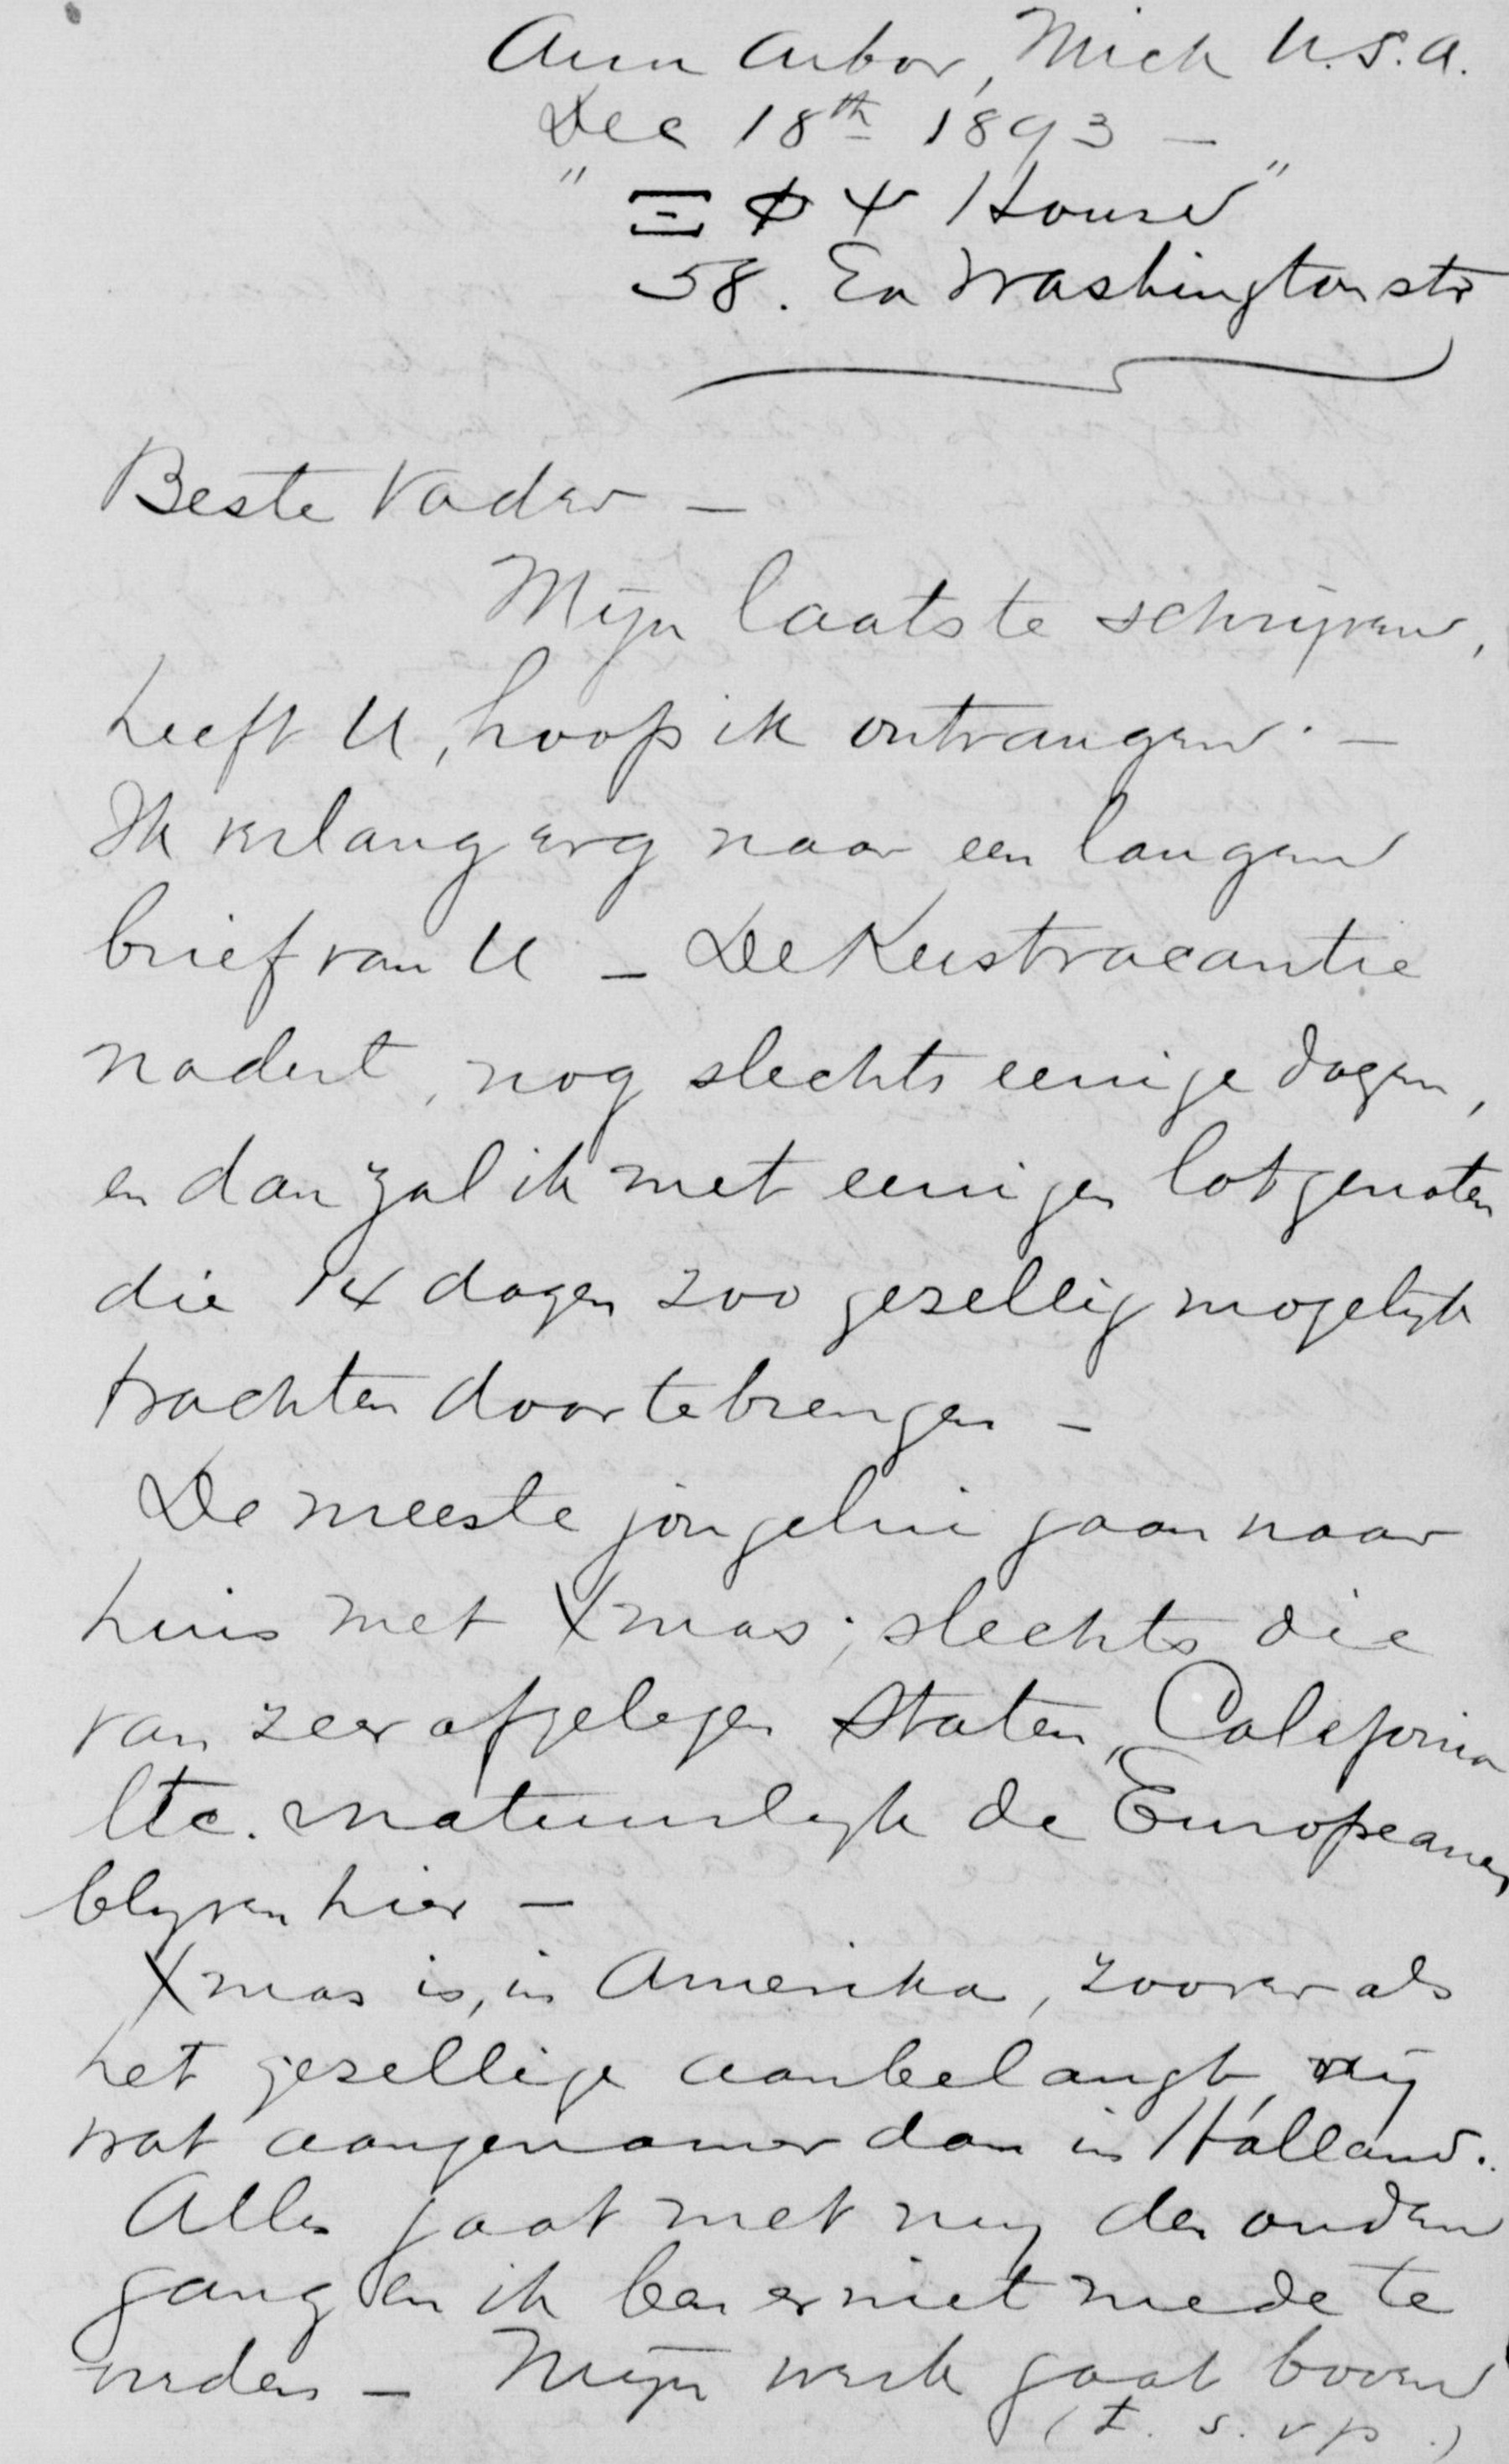 Ann Arbor, Mich U.S.A.
Dec 18th 1893 —
" Ξ Φ Ψ House"
58. Ea Washington str
Beste Vader —
Mijn laatste schrijven,
heeft U, hoop ik ontvangen. —
Ik verlang erg naar een langen
brief van U — De Kerstvacantie
nadert, nog slechts eenige dagen,
en dan zal ik met eenigen lotgenoten
die 14 dagen zoo gezellig mogelijk
trachten doortebrengen —
De meeste jongelui gaan naar
huis met Xmas; slechts die
van zeer afgelegen Staten, California
etc. natuurlijk de Europeanen
blijven hier —
Xmas is, in Amerika, zoover als
het gezellige aanbelangt, vrij
wat aangenamer dan in Holland.
Alles gaat met mij den ouden
gang en ik ben er niet mede te
vreden — Mijn werk gaat boven
(t. s. v p.)